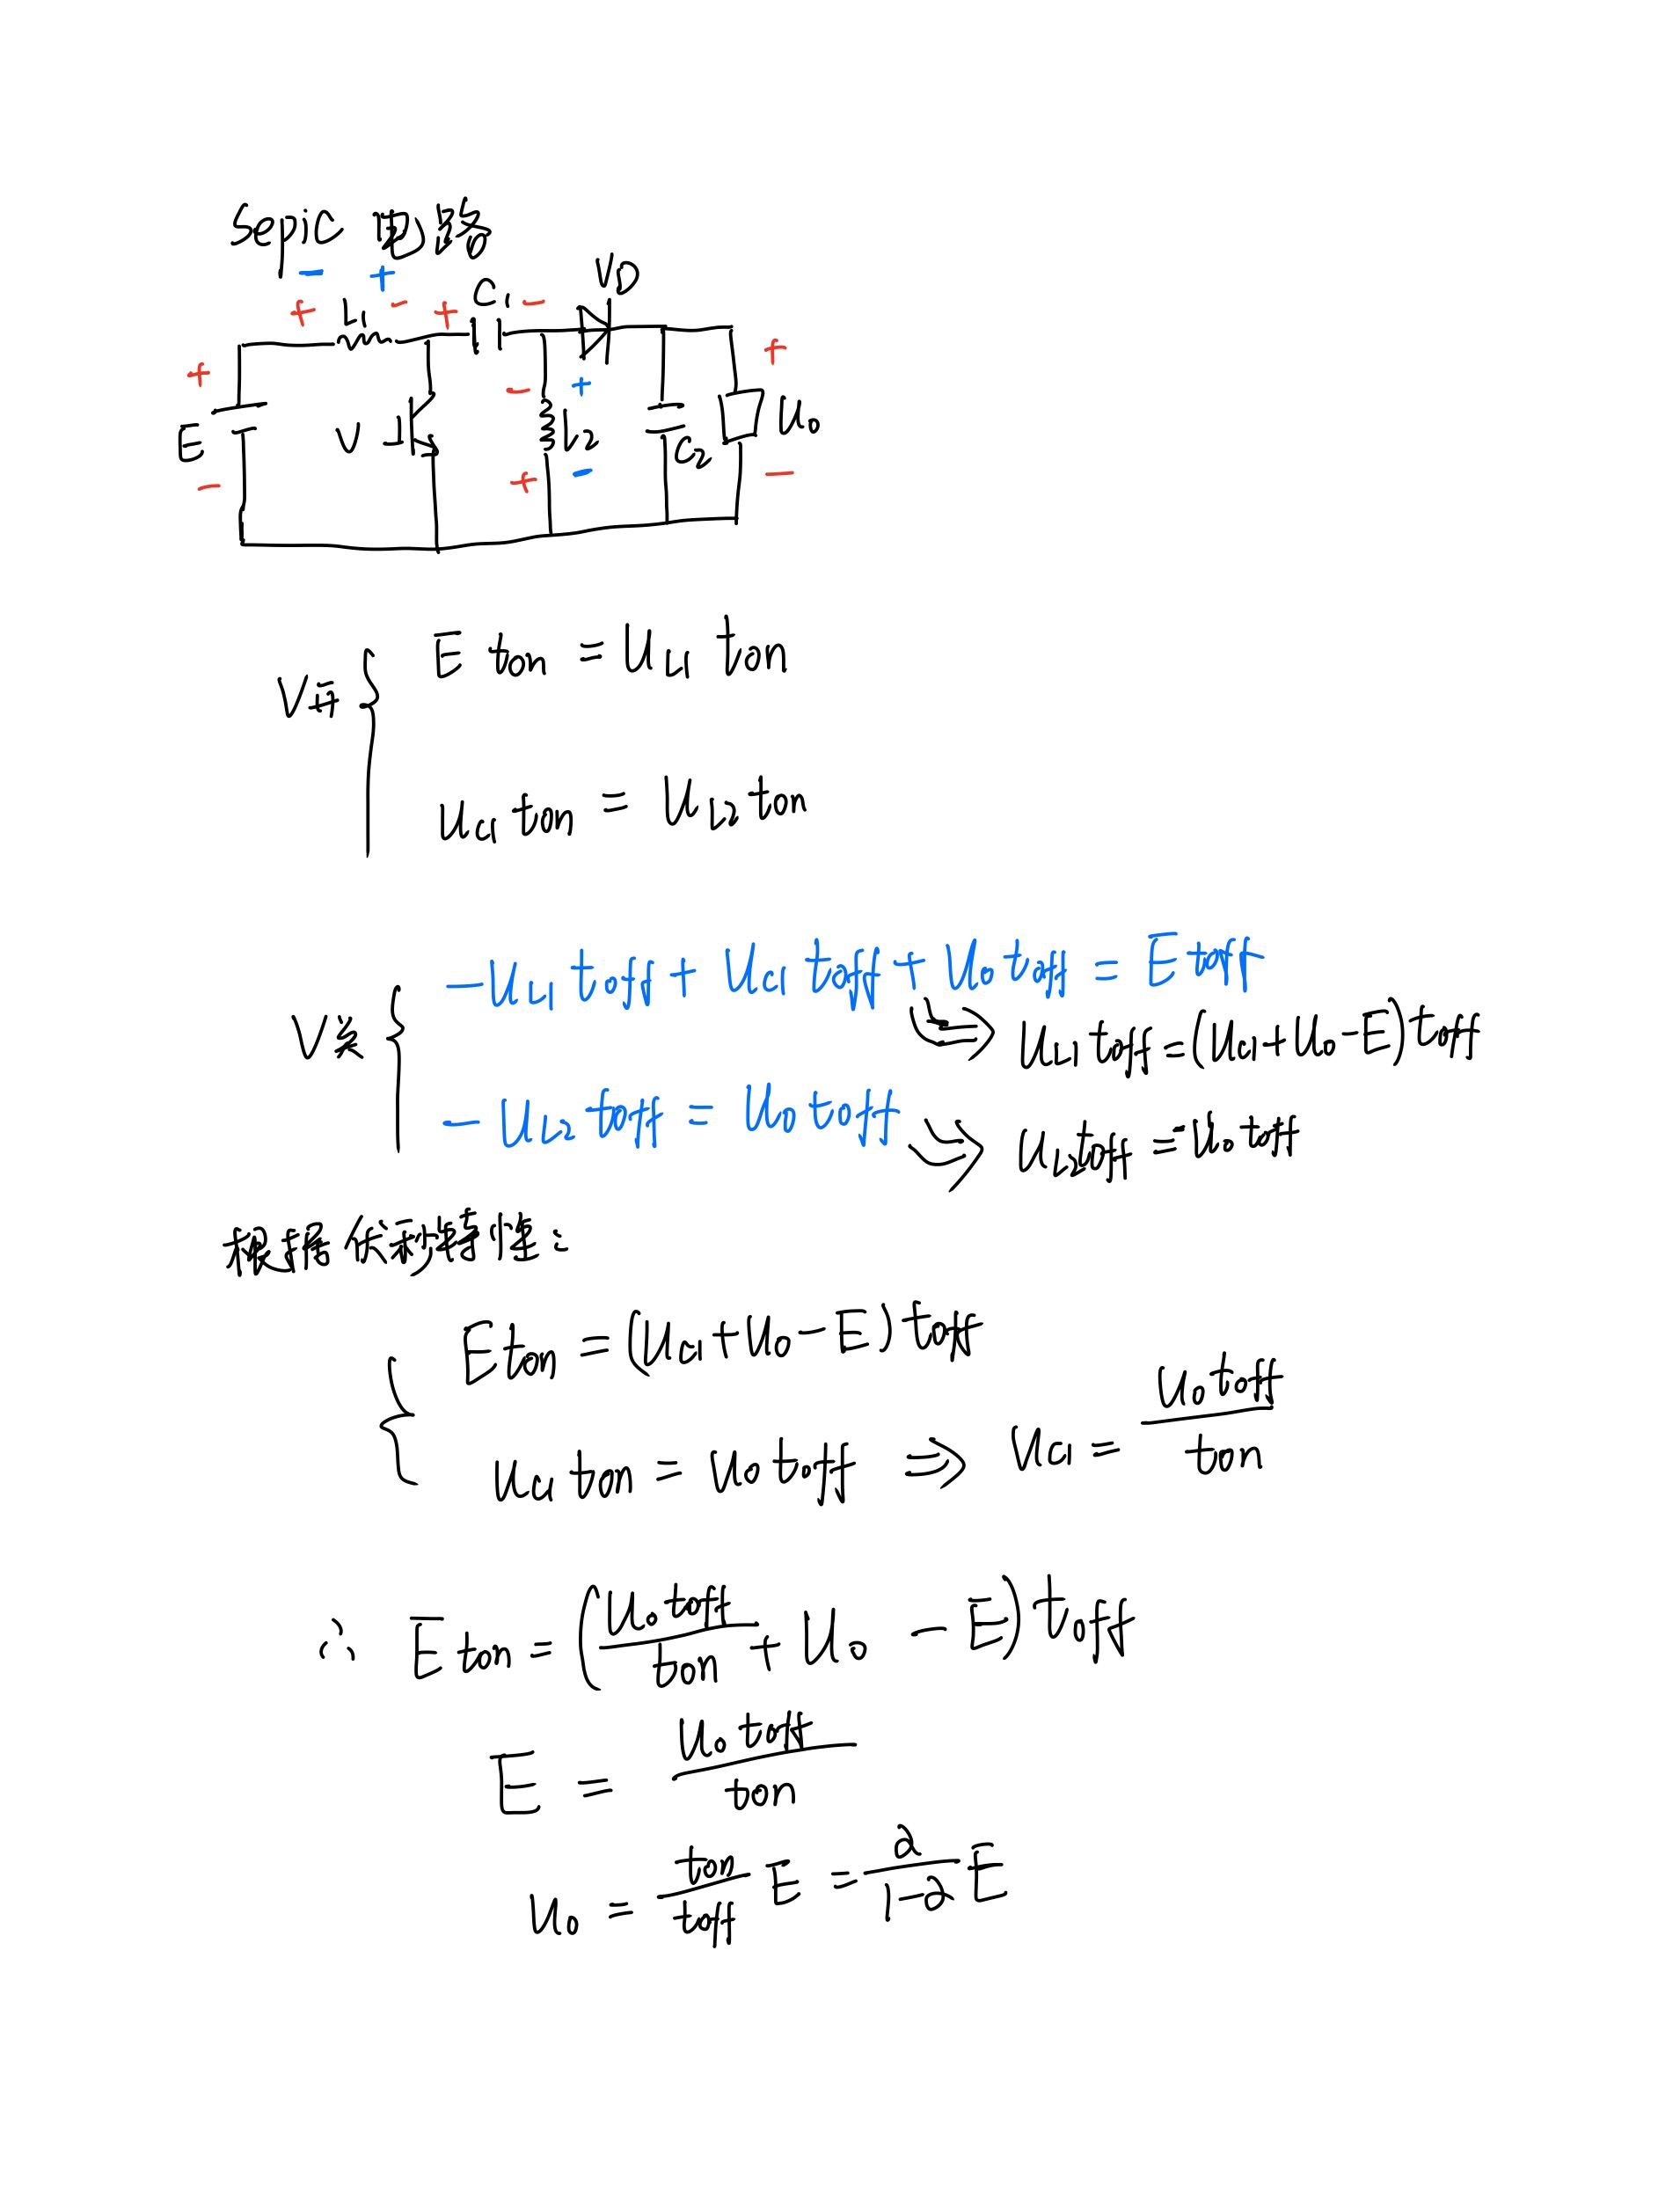 Sepic 电路
- +
+ L1 - + C1 - VD
+ E - V - + L2 + - C2 + U0 -
V开 { E ton = UL1 ton
UC1 ton = UL2 ton
V关 { -UL1 toff + UC1 toff + U0 toff = E toff
⇒ UL1 toff = (UC1 + U0 - E) toff
-UL2 toff = U0 toff ⇒ UL2 toff = U0 toff
根据伏秒特性:
{ E ton = (UC1 + U0 - E) toff
UC1 ton = U0 toff ⇒ UC1 = U0 toff / ton
∴ E ton = (U0 toff / ton + U0 - E) toff
E = U0 toff / ton
U0 = ton / toff E = ∂ / 1-∂ E